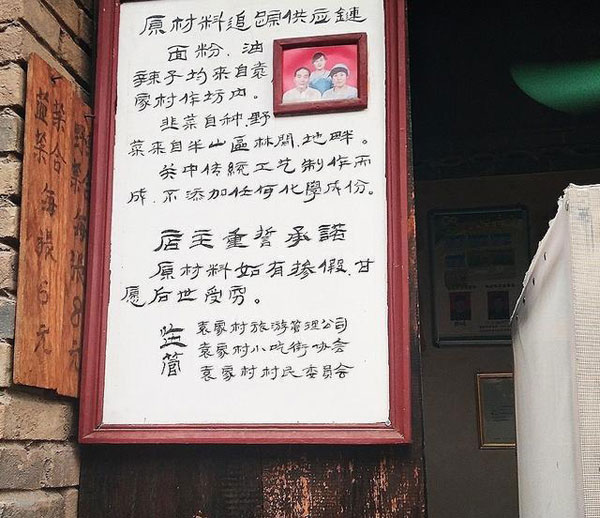 原材料追踪供应鏈
面粉、油
辣子均来自袁
家村作坊内。
韭菜自种、野
菜来自半山區林間、地畔。
关中传統工艺制作而
成、不添加任何化學成份。
店主重誓承諾
原材料如有掺假、甘
愿后世受穷。
监管
袁家村旅游管理公司
袁家村小吃街协会
袁家村村民委员会
野菜合 每張8元
菜合 每張6元